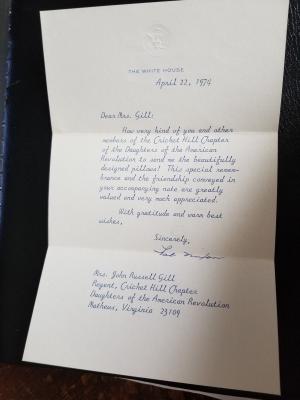 THE WHITE HOUSE
April 22, 1974
Dear Mrs. Gill:
How very kind of you and other
members of the Cricket Hill Chapter
of the Daughters of the American
Revolution to send me the beautifully
designed pillows! This special remem-
brance and the friendship conveyed in
your accompanying note are greatly
valued and very much appreciated.
With gratitude and warm best
wishes,
Sincerely,
Pat Nixon
Mrs. John Russell Gill
Regent, Cricket Hill Chapter
Daughters of the American Revolution
Mathews, Virginia 23109